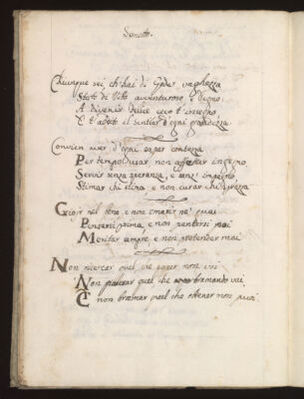 Sonetto.
Chiunque sei, ch'hai di Goder vaghezza
Stato di Vita avventuroso, e degno
A divenir felice ecco t'insegno
E t'addito il sentier d'ogni grandezza
Convien aver d'ogni saper contezza
Per tempo usar, non affettar ingegno
Servir senza speranza, e senz' impegno
Stimar chi stima, e non curar chi sprezza
Gioir nel bene, e non smarrir ne' guai
Pensarci prima, e non pentirsi mai
Meritar sempre, e non pretender mai
Non ricercar quel che saper non vuoi
Non palesar quel che bramando vai
E non bramar quel che ottener non puoi